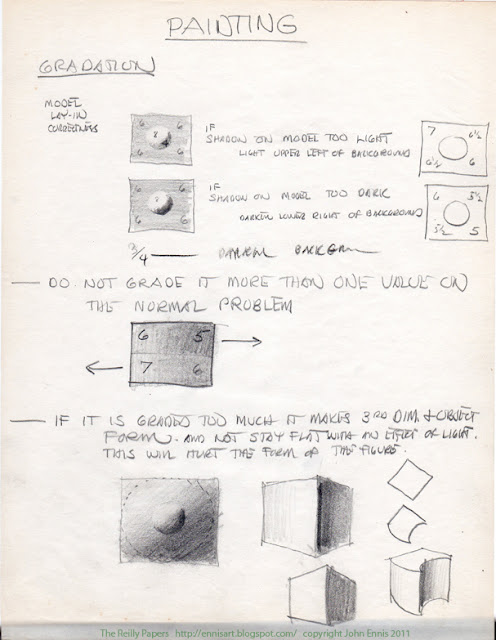 PAINTING
GRADATION
MODEL
LAY-IN
CORRECTNESS
6 6
8
6 6
IF
SHADOW ON MODEL TOO LIGHT
LIGHT UPPER LEFT OF BACKGROUND
7 6½
6½ 6
6 6
7
6 6
IF
SHADOW ON MODEL TOO DARK
DARKEN LOWER RIGHT OF BACKGROUND
6 5½
5½ 5
3/4 —
— DO NOT GRADE IT MORE THAN ONE VALUE ON
THE NORMAL PROBLEM
6 5
7 6
— IF IT IS GRADED TOO MUCH IT MAKES 3RD DIM. + OBJECT
FORM. AND NOT STAY FLAT WITH AN EFFECT OF LIGHT.
THIS WILL HURT THE FORM OF THE FIGURE.
The Reilly Papers http://ennisart.blogspot.com/ copyright John Ennis 2011